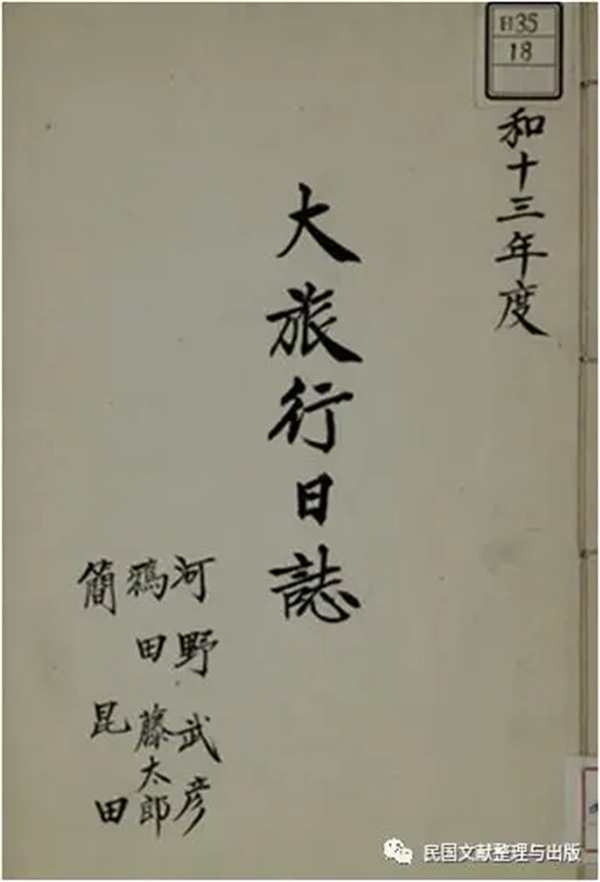 日35
18
和十三年度
大旅行日誌
河野武彦
鶸田藤太郎
簡昆田
民国文献整理与出版